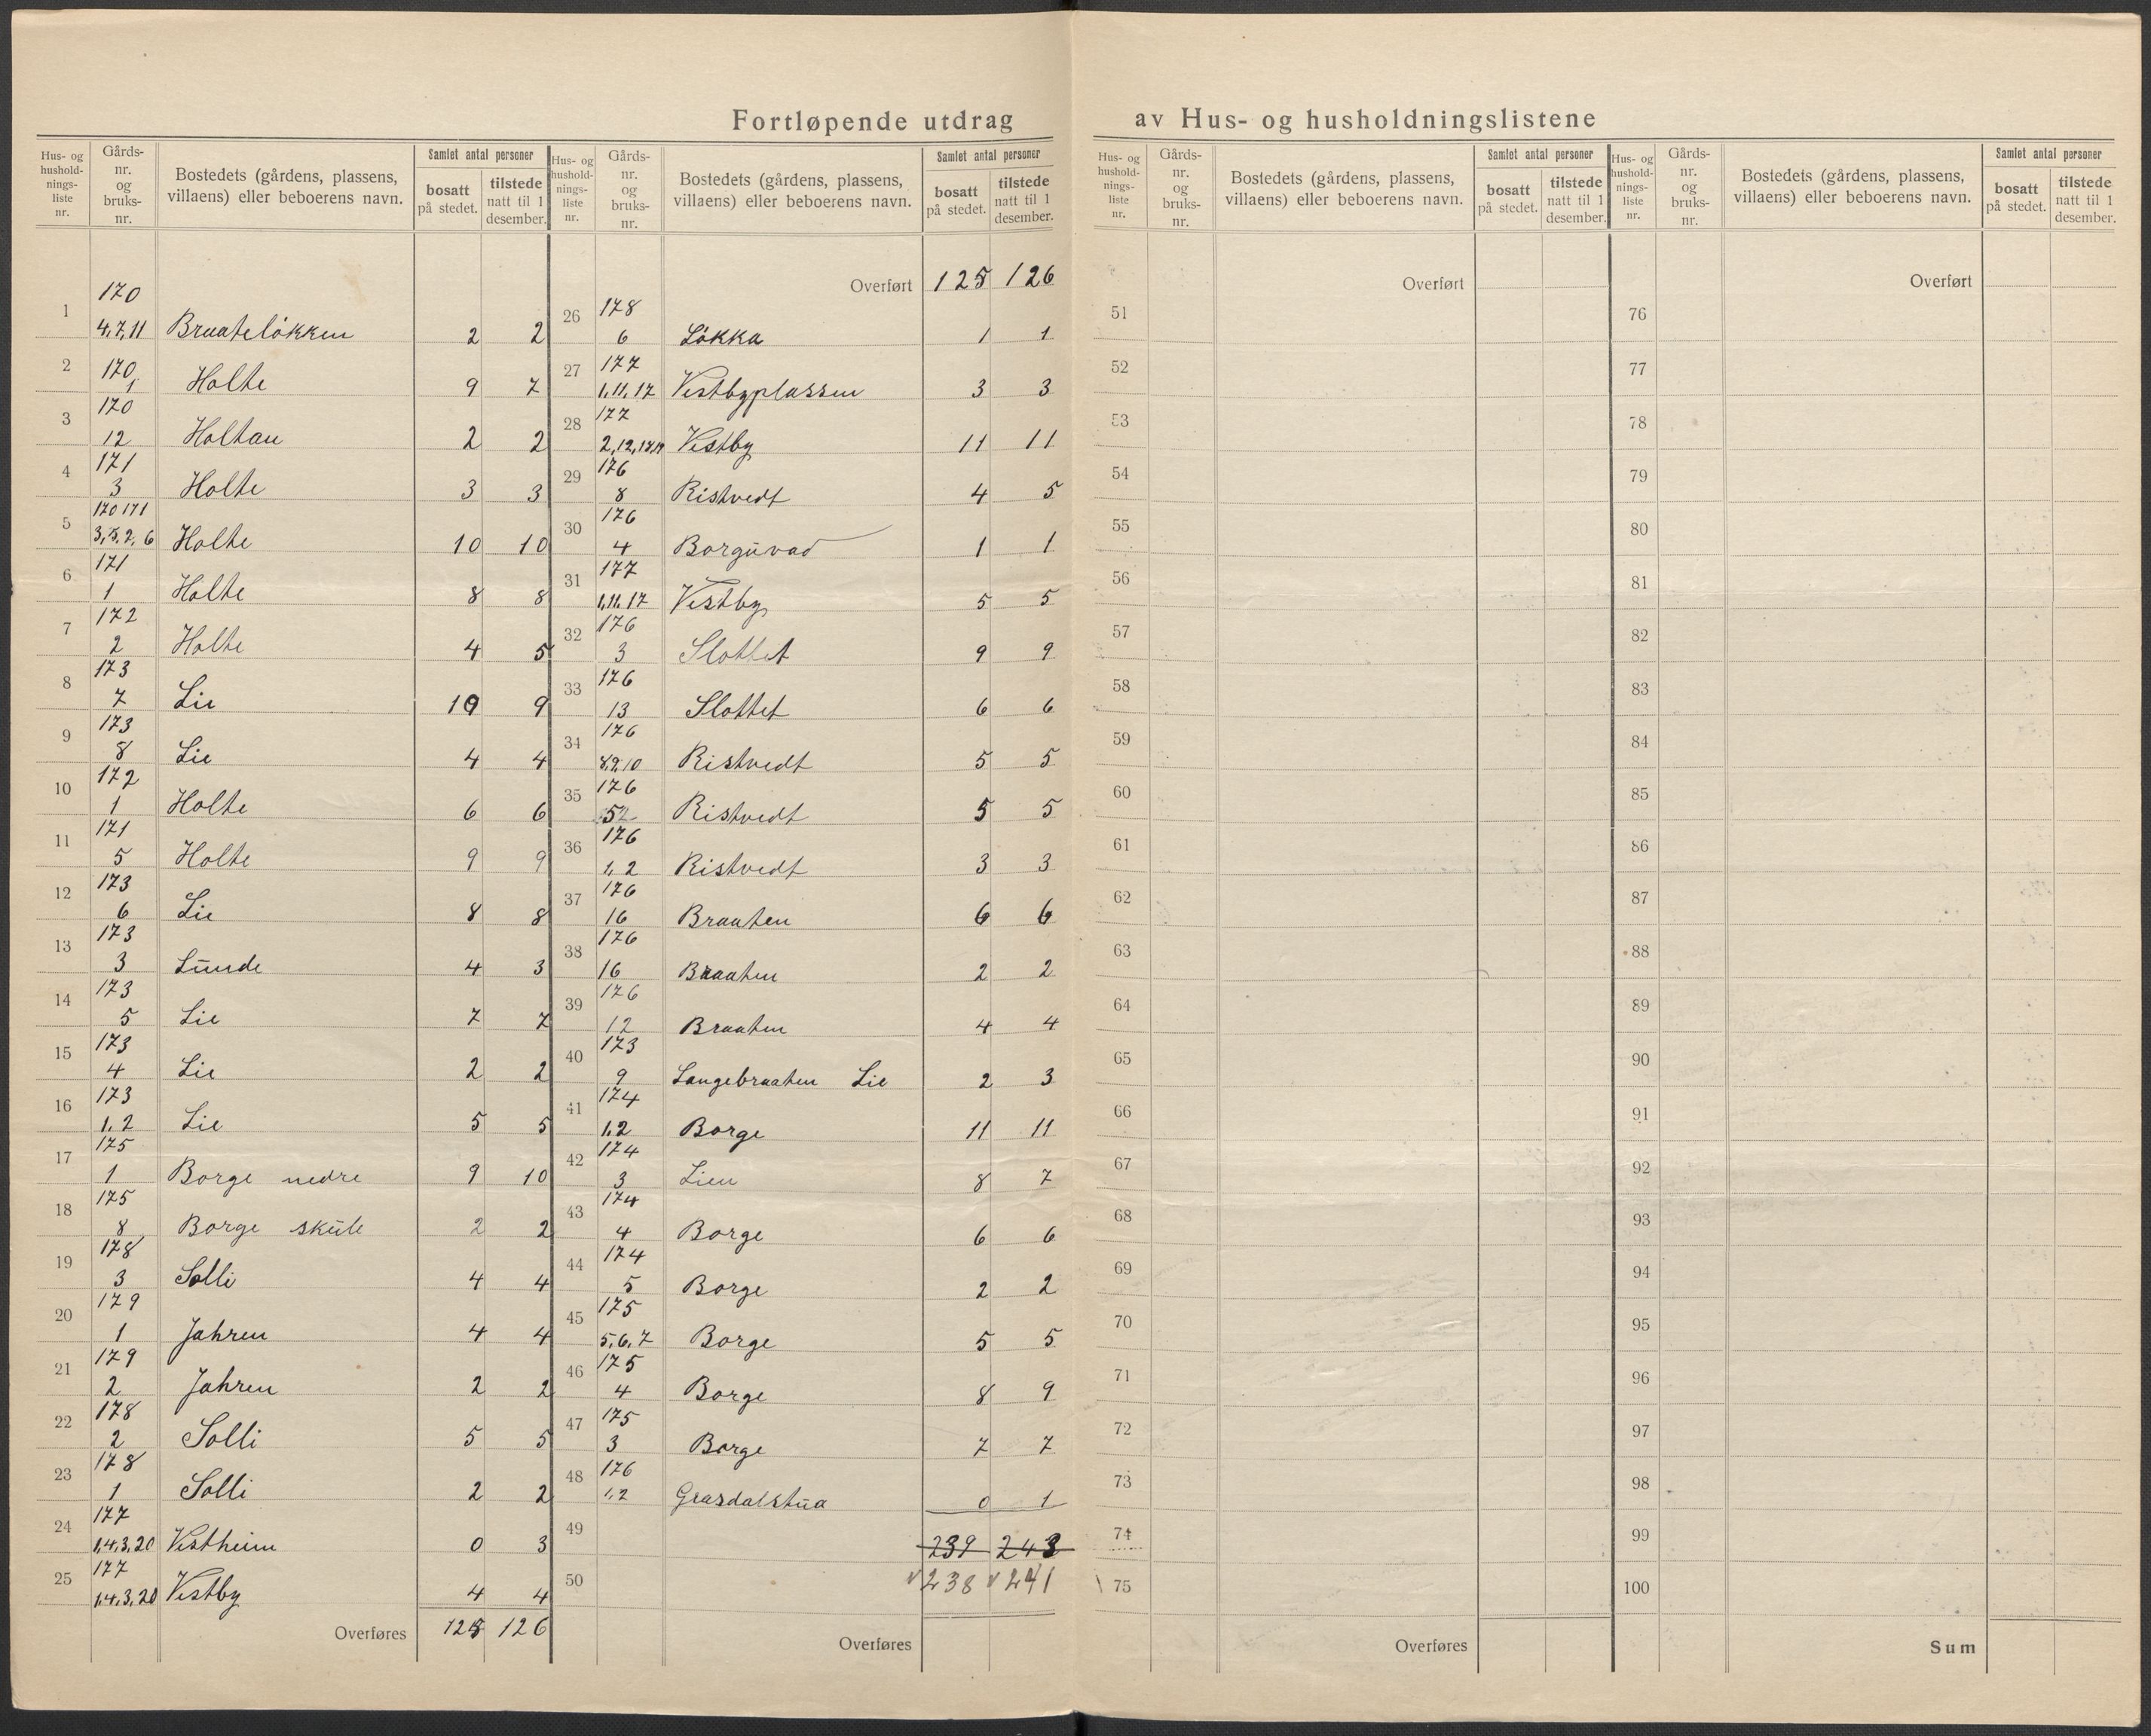 Fortløpende utdrag av Hus- og husholdningslistene
Hus- og hushold-nings-liste nr. Gårds-nr. og bruks-nr. Bostedets (gårdens, plassens, villaens) eller beboerens navn. Samlet antal personer bosatt på stedet. tilstede natt til 1 desember.
1 170 4,7,11 Braateløkken 2 2
2 170 1 Holte 9 7
3 170 12 Holtan 2 2
4 171 3 Holte 3 3
5 170 171 3,5.2,6 Holte 10 10
6 171 1 Holte 8 8
7 172 2 Holte 4 5
8 173 7 Lie 10 9
9 173 8 Lie 4 4
10 172 1 Holte 6 6
11 171 5 Holte 9 9
12 173 6 Lie 8 8
13 173 3 Lunde 4 3
14 173 5 Lie 7 7
15 173 4 Lie 2 2
16 173 1,2 Lie 5 5
17 175 1 Borge nedre 9 10
18 175 8 Borge skule 2 2
19 178 3 Solli 4 4
20 179 1 Jahren 4 4
21 179 2 Jahren 2 2
22 178 2 Solli 5 5
23 178 1 Solli 2 2
24 177 1,4,3,20 Vestheim 0 3
25 177 1,4,3,20 Vestby 4 4
Overføres 125 126
Hus- og hushold-nings-liste nr. Gårds-nr. og bruks-nr. Bostedets (gårdens, plassens, villaens) eller beboerens navn. Samlet antal personer bosatt på stedet. tilstede natt til 1 desember.
Overført 125 126
26 178 6 Løkka 1 1
27 177 1,11,17 Vestbyplassen 3 3
28 177 2,12, Vestby 11 11
29 176 8 Ristvedt 4 5
30 176 4 1 1
31 177 1,11,17 Vestby 5 5
32 176 3 Slottet 9 9
33 176 13 Slottet 6 6
34 176 8,9,10 Ristvedt 5 5
35 176 5 Ristvedt 5 5
36 176 1,2 Ristvedt 3 3
37 176 16 Braaten 6 6
38 176 16 Braaten 2 2
39 176 12 Braaten 4 4
40 173 9 Langebraaten Lie 2 3
41 174 1,2 Borge 11 11
42 174 3 Lien 8 7
43 174 4 Borge 6 6
44 174 5 Borge 2 2
45 175 5,6,7 Borge 5 5
46 175 4 Borge 8 9
47 175 3 Borge 7 7
48 176 1,2 Grasdalstua 0 1
49 239 243
50 238 241
Overføres
Hus- og hushold-nings-liste nr. Gårds-nr. og bruks-nr. Bostedets (gårdens, plassens, villaens) eller beboerens navn. Samlet antal personer bosatt på stedet. tilstede natt til 1 desember.
Overført
51
52
53
54
55
56
57
58
59
60
61
62
63
64
65
66
67
68
69
70
71
72
73
74
75
Overføres
Hus- og hushold-nings-liste nr. Gårds-nr. og bruks-nr. Bostedets (gårdens, plassens, villaens) eller beboerens navn. Samlet antal personer bosatt på stedet. tilstede natt til 1 desember.
Overført
76
77
78
79
80
81
82
83
84
85
86
87
88
89
90
91
92
93
94
95
96
97
98
99
100
Sum